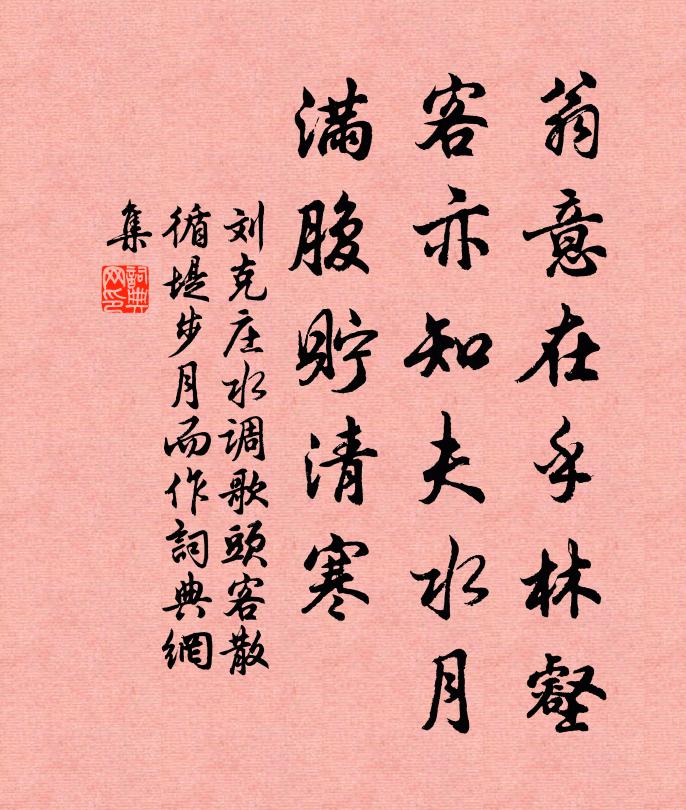 翁意在乎林壑
客亦知夫水月
满腹贮清寒
刘克庄水调歌头客散
循堤步月而作词典網
集
詞典網印